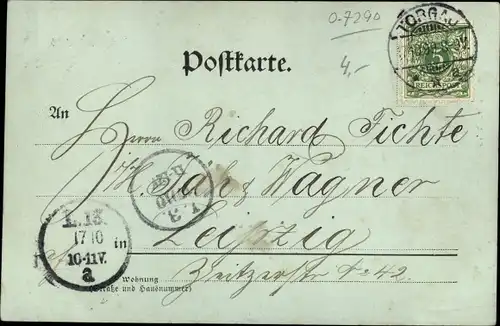 0-7290
4,-
TORGAU
5
REICHSPOST
Postkarte.
An
Herrn Richard Fichte
Wagner
L. 13.
17 10
10-11V.
a
in Leipzig
Zeitzerstr 42
Wohnung
(Straße und Hausnummer)